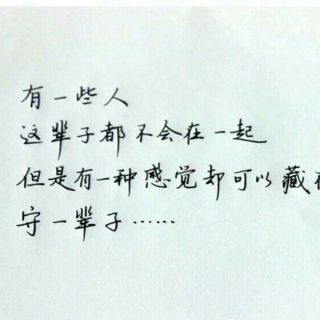 有一些人
这辈子都不会在一起
但是有一种感觉却可以藏
守一辈子……